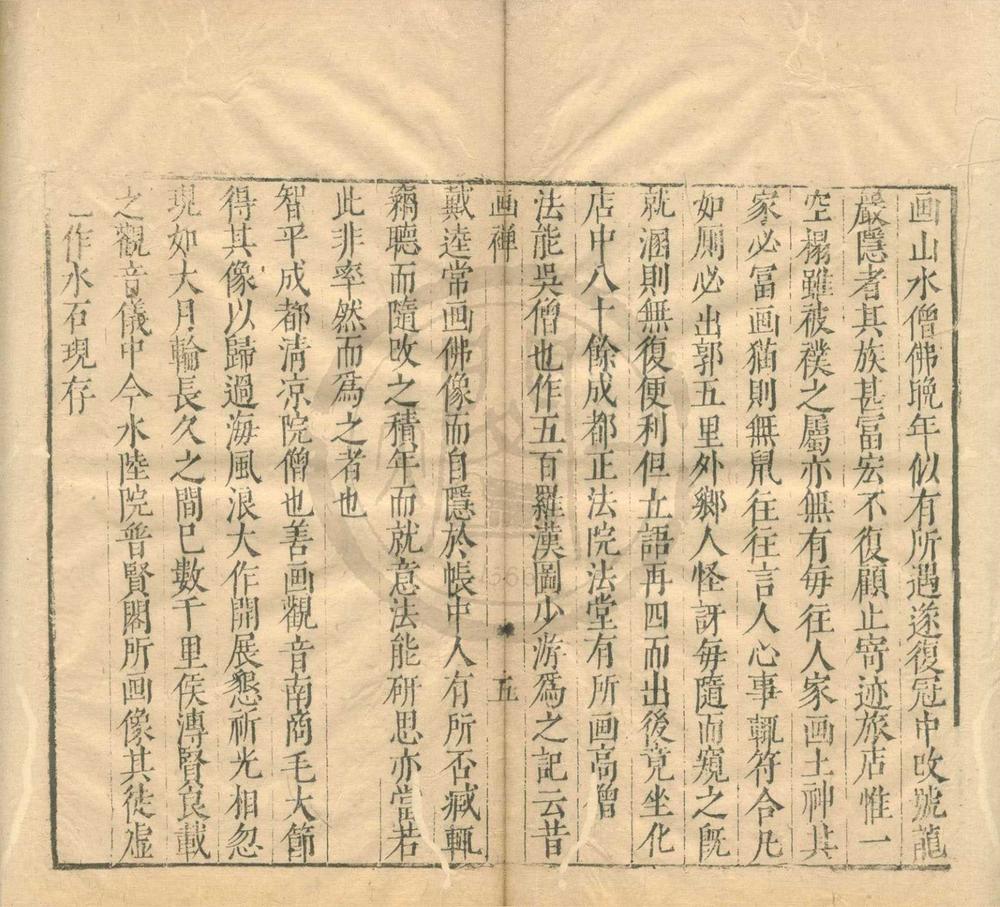 画山水僧佛晚年似有所遇遂復冠巾改號龍
巖隱者其族甚富宏不復顧止寄迹旅店惟一
空榻雖被襆之屬亦無有每往人家画土神其
家必冨画猫則無鼠往往言人心事輒符合凡
如厠必出郭五里外鄉人怪訝每隨而窺之旣
就溷則無復便利但立語再四而出後竟坐化
店中八十餘成都正法院法堂有所画高僧
法能吳僧也作五百羅漢圖少游爲之記云昔
画禅
五
戴逵常画佛像而自隱於帳中人有所否臧輒
竊聽而隨改之積年而就意法能研思亦當若
此非率然而爲之者也
智平成都清凉院僧也善画觀音南商毛大節
得其像以歸過海風浪大作開展懇祈光相忽
現如大月輪長久之間已數千里侯溥賢良載
之觀音儀中今水陸院普賢閣所画像其徒虛
一作水石現存